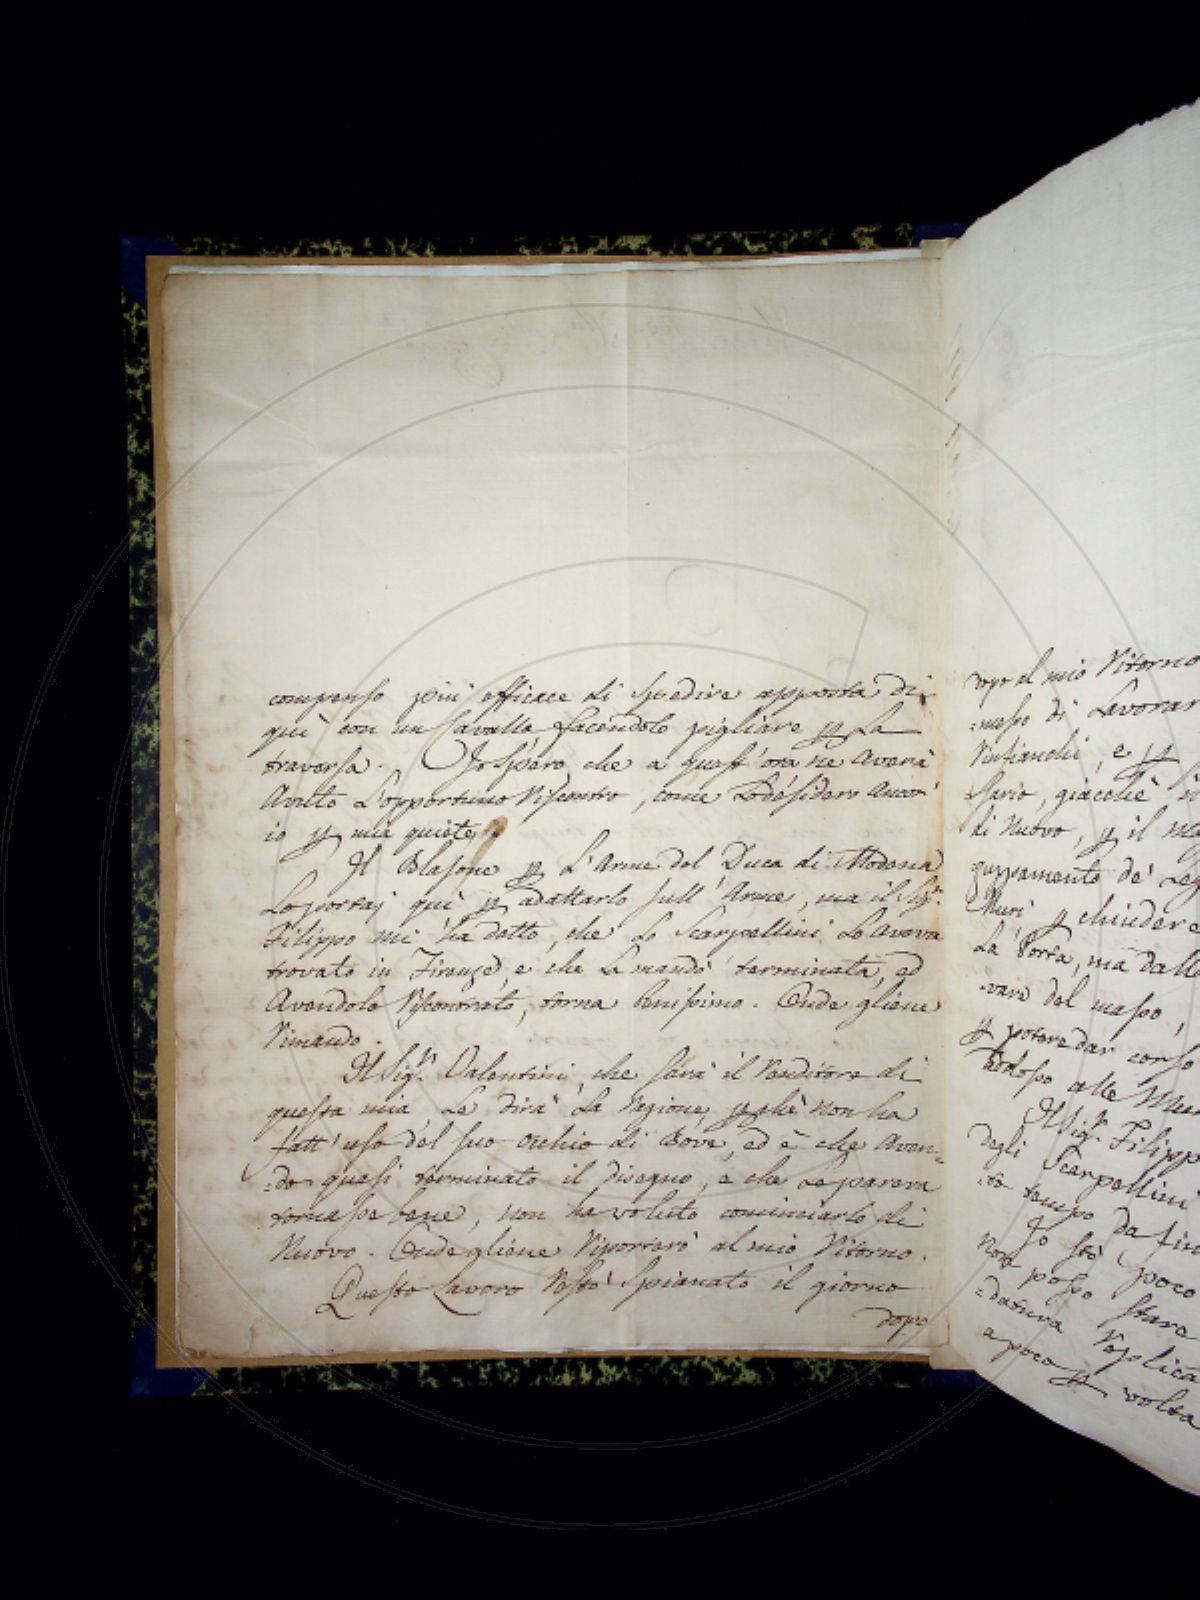 compenso più efficace di spedire apposta di
quì con un Cavallo facendolo pigliare p la
traversa. Io spero che a quest'ora ne averà
Avuto L'opportuno Riscontro, come Lo desidero Ancor'
io p mia quiete.
Il Blasone p L'Arme del Duca di Modena
Lo portaj quì p adattarlo sull'Arme, ma il Sigr.
Filippo mi ha detto, che Lo Scarpellini Lo aveva
trovato in Firenze, e che La mandò terminata, ed
Avendolo Riscontrato, torna benissimo. Onde gliene
Rimando.
Il Sigr. Valentini, che sarà il Renditore di
questa mia Le dirà La ragione, pchè non ha
fatt'uso del suo Occhio di Bove, ed è che Aven-
=do quasi terminato il Disegno, e che Le pareva
tornasse bene, non ha voluto cominciarlo di
Nuovo. Onde gliene Riporterò al mio Ritorno.
Questo Lavoro Restò Spianato il giorno
dopo
dopo al mio Ritorno
=masso di Lavorar
Rinfianchi, e p
=sario, giacchè
di Nuovo, p il
guppamento de' Leg
Muri, p chiudere
La Porta, mà dalle
=vare del masso,
p poter dar corso
addosso alle Mur
Il Sigr. Filippo
degli Scarpellini
=to tempo da fin
Io stò poco
Non posso stare
=datura Replica
a poco p volta